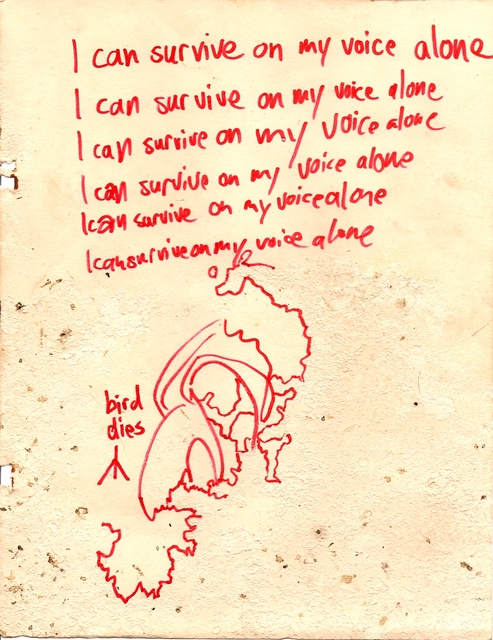 I can survive on my voice alone
I can survive on my voice alone
I can survive on my voice alone
I can survive on my voice alone
I can survive on my voice alone
I can survive on my voice alone
bird
dies